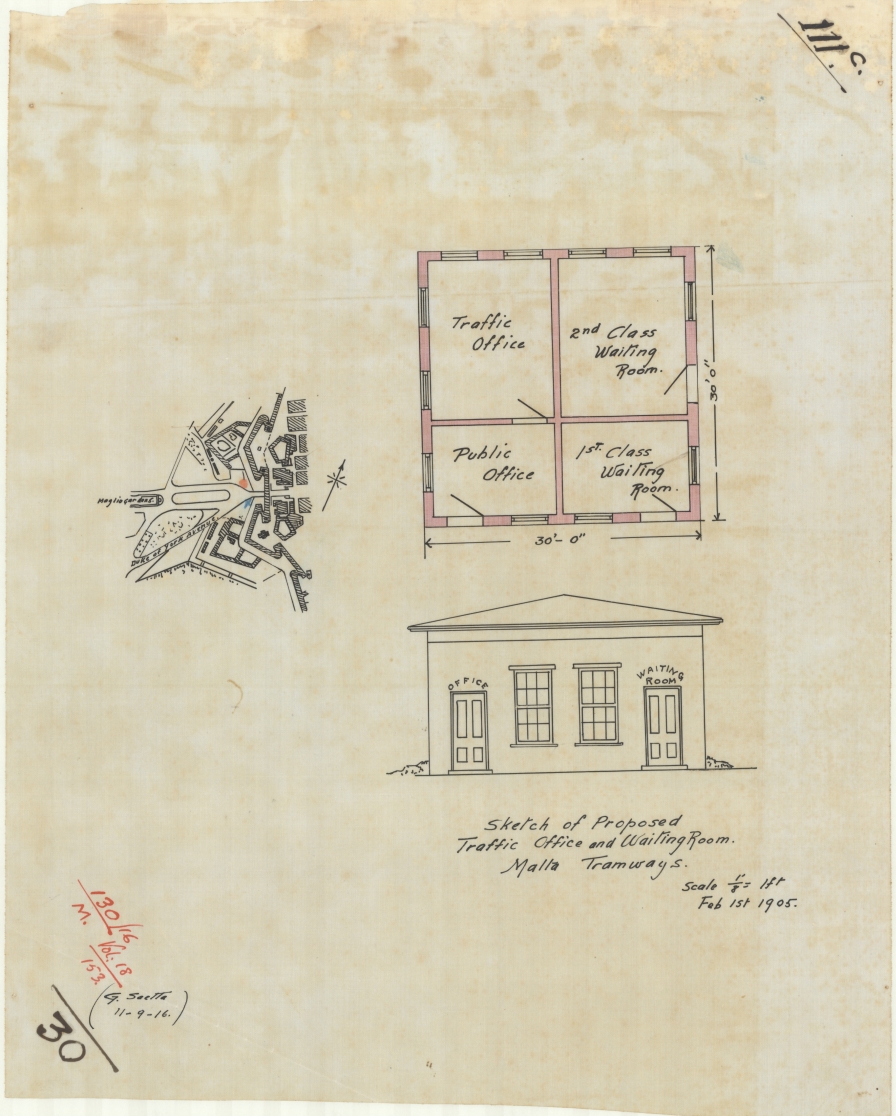 111.c.
Traffic
Office
2nd Class
Waiting
Room.
30'0"
Public
Office
1st. Class
Waiting
Room.
30'-0"
Duke of York Avenue
OFFICE
WAITING
ROOM
Sketch of Proposed
Traffic Office and Waiting Room.
Malta Tramways.
Scale 1/8" = 1ft
Feb 1st 1905.
130/16
M. Vol: 18
153.
(G.
11-9-16.)
30